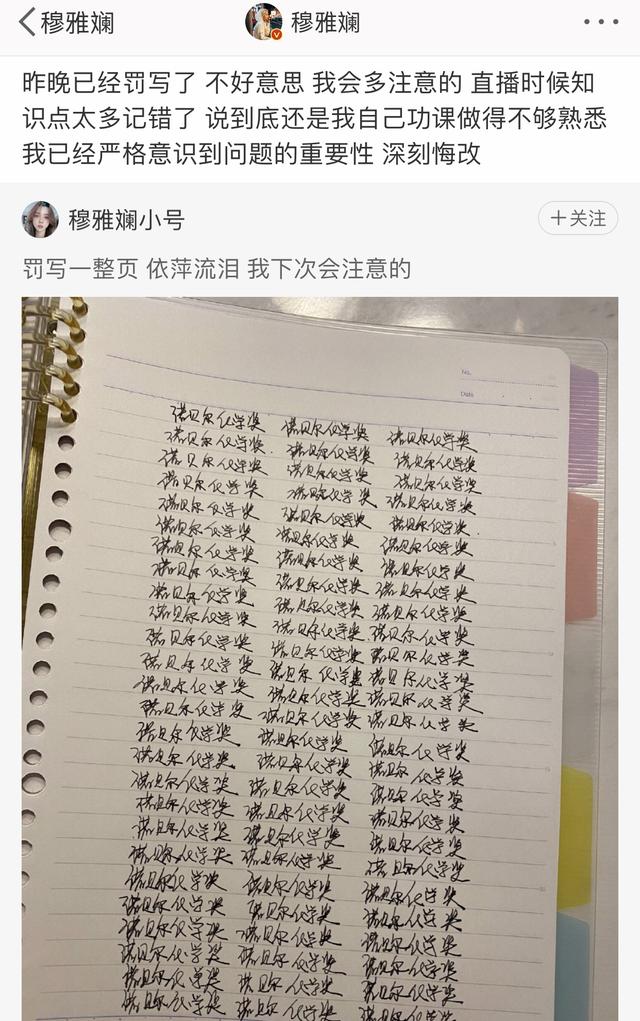 穆雅斓 穆雅斓
昨晚已经罚写了 不好意思 我会多注意的 直播时候知
识点太多记错了 说到底还是我自己功课做得不够熟悉
我已经严格意识到问题的重要性 深刻悔改
穆雅斓小号 +关注
罚写一整页 依萍流泪 我下次会注意的
No.
Date
诺贝尔化学奖 诺贝尔化学奖 诺贝尔化学奖
诺贝尔化学奖 诺贝尔化学奖 诺贝尔化学奖
诺贝尔化学奖 诺贝尔化学奖 诺贝尔化学奖
诺贝尔化学奖 诺贝尔化学奖 诺贝尔化学奖
诺贝尔化学奖 诺贝尔化学奖 诺贝尔化学奖
诺贝尔化学奖 诺贝尔化学奖 诺贝尔化学奖
诺贝尔化学奖 诺贝尔化学奖 诺贝尔化学奖
诺贝尔化学奖 诺贝尔化学奖 诺贝尔化学奖
诺贝尔化学奖 诺贝尔化学奖 诺贝尔化学奖
诺贝尔化学奖 诺贝尔化学奖 诺贝尔化学奖
诺贝尔化学奖 诺贝尔化学奖 诺贝尔化学奖
诺贝尔化学奖 诺贝尔化学奖 诺贝尔化学奖
诺贝尔化学奖 诺贝尔化学奖 诺贝尔化学奖
诺贝尔化学奖 诺贝尔化学奖 诺贝尔化学奖
诺贝尔化学奖 诺贝尔化学奖 诺贝尔化学奖
诺贝尔化学奖 诺贝尔化学奖 诺贝尔化学奖
诺贝尔化学奖 诺贝尔化学奖 诺贝尔化学奖
诺贝尔化学奖 诺贝尔化学奖 诺贝尔化学奖
诺贝尔化学奖 诺贝尔化学奖 诺贝尔化学奖
诺贝尔化学奖 诺贝尔化学奖 诺贝尔化学奖
诺贝尔化学奖 诺贝尔化学奖 诺贝尔化学奖
诺贝尔化学奖 诺贝尔化学奖 诺贝尔化学奖
诺贝尔化学奖 诺贝尔化学奖 诺贝尔化学奖
诺贝尔化学奖 诺贝尔化学奖 诺贝尔化学奖
诺贝尔化学奖 诺贝尔化学奖 诺贝尔化学奖
诺贝尔化学奖 诺贝尔化学奖 诺贝尔化学奖